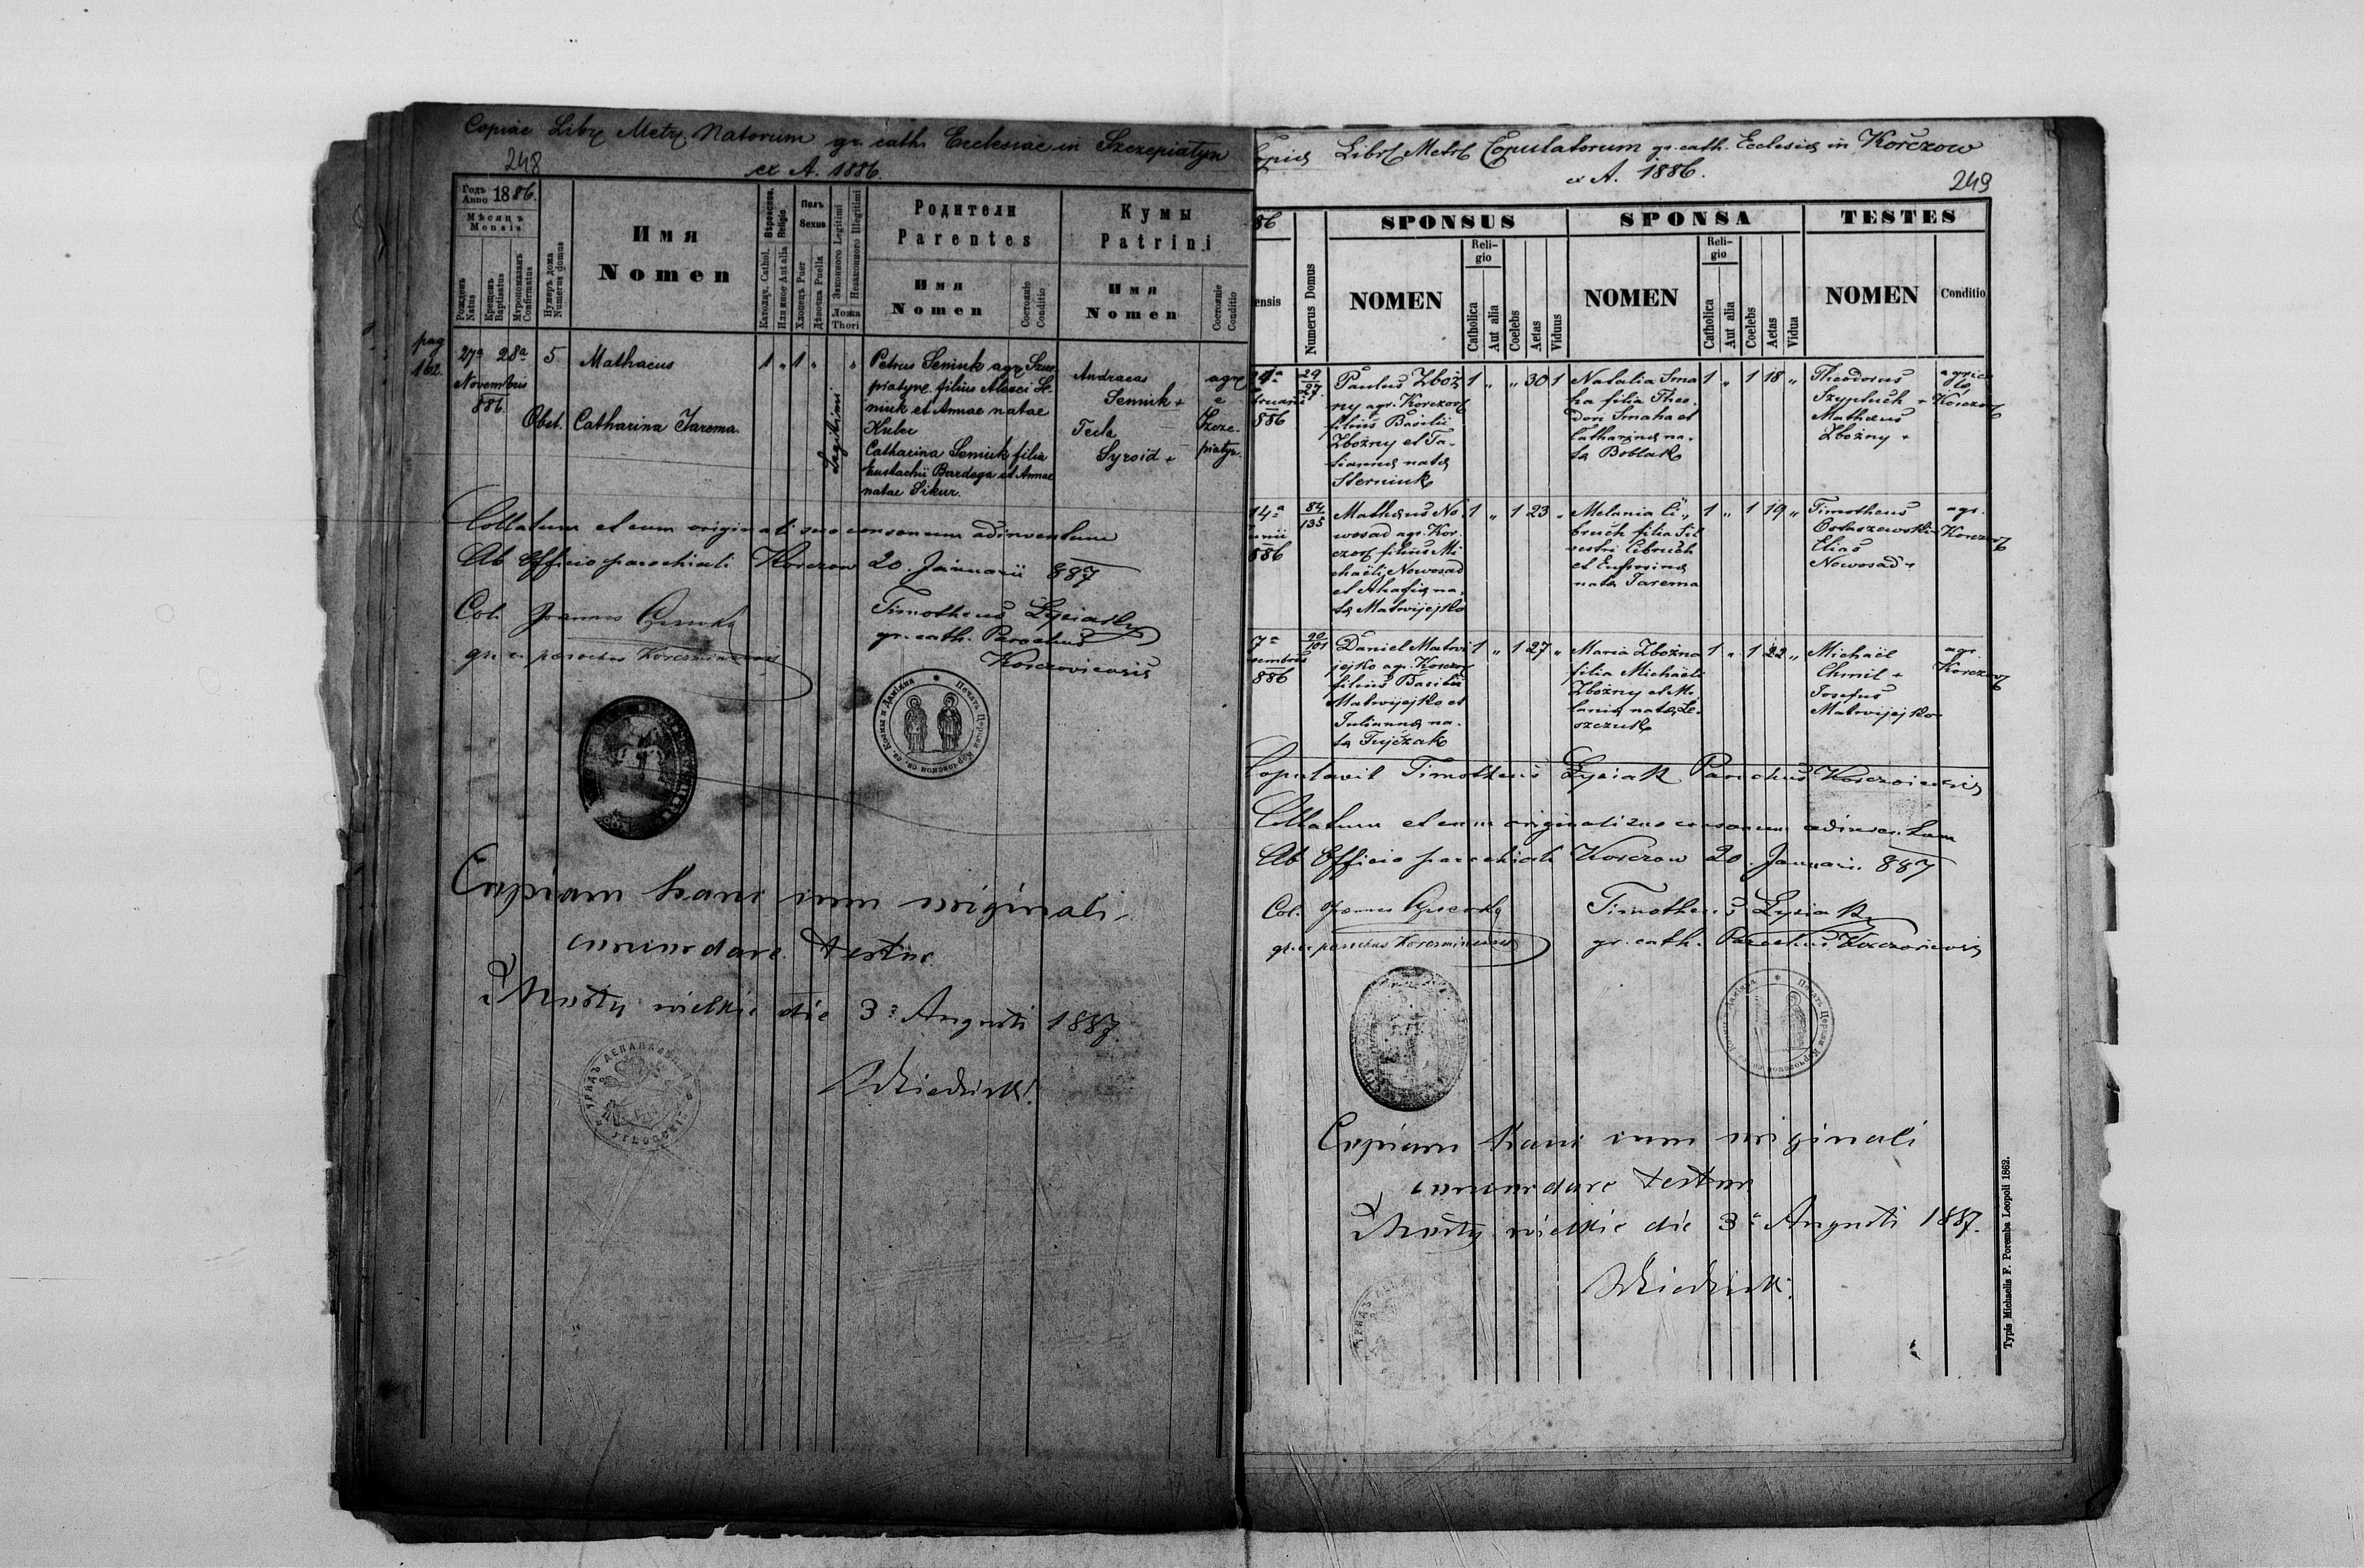 Copiae Libr. Metr. Natorum gr. cath. Ecclesiae in Szczepiatyn
248
ex A. 1886.
Годъ
Anno 1886.
Мѣсяцъ
Mensis
Рожденъ
Natus
Крещенъ
Baptisatus
Муропомазанъ
Confirmatus
Нумеръ дома
Numerus domus
Имя
Nomen
Вѣроиспов.
Religio
Католич. Cathol.
Или иное Aut alia
Полъ
Sexus
Хлопецъ Puer
Дѣвочка Puella
Законного Legitimi
Незаконного Illegitimi
Ложа
Thori
Родители
Parentes
Имя
Nomen
Состоянiе
Conditio
Кумы
Patrini
Имя
Nomen
Состоянiе
Conditio
pag
162.
27a 28a
Novembris
886.
5.
Mathaeus
Obst. Catharina Jarema
1 „ 1 „
Legitimi
Petrus Seniuk agr. Szcze-
piatyn. filius Alexei Se-
niuk et Annae natae
Kuber
Catharina Seniuk filia
Eustachii Bardega et Annae
natae Sikur.
Andraeas
Seniuk +
Tecla
Syroid +
agr.
e
Szcze-
piatyn.
Collatum et cum originali suo consonum adinventum
Ab Officio parochiali Korczow 20. Januarii 887
Col. Joannes
gr. c. parochus Korczminensis
Timotheus Łysiak
gr. cath. Parochus
Korczoviensis
Печать Церкви Корчовской св. св. Космы и Даміана
Copiam hanc cum originali
concordare testor.
Mosty wielkie die 3a Augusti 1887.
Copia Libri Metr. Copulatorum gr. cath. Ecclesia in Korczow
ex A. 1886.
249
86
ensis
Numerus Domus
SPONSUS
NOMEN
Reli-
gio
Catholica
Aut alia
Coelebs
Aetas
Viduus
SPONSA
NOMEN
Reli-
gio
Catholica
Aut alia
Coelebs
Aetas
Vidua
TESTES
NOMEN
Conditio
886
29
27
Paulus Zboż
ny agr. Korczow
filius Basilii
Zbożny et Ta-
tianna nata
Sterniuk
1 „ „ 30 1
Natalia Sma
ha filia Theo-
dori Smaha et
Catharina na-
ta Boblak
1 „ 1 18 „
Theodorus
Szyptuch +
Mathaeus
Zbożny +
agric
Korczow
14a
unii
886
84
135
Mathaeus No-
wosad agr. Kor-
czow filius Mi
chaëli Nowosad
et Ahafia na-
ta Matwijejko
1 „ 1 23 „
Melania Ci-
bruch filia Sil
vestri Cibruch
et Eufrosina
nata Jarema
1 „ 1 19 „
Timotheus
Elias
Nowosad +
agr.
Korczow
7a
embris
886
20
101
Daniel Matwi
jejko agr. Korczow
filius Basilii
Matwijejko et
Julianna na-
ta Tujczak
1 „ 1 27 „
Maria Zbożna
filia Michaëli
Zbożny et Me-
lania nata Le-
szczuk
1 „ 1 22 „
Michaël
Chmil +
Josefus
Matwijejko
agr.
Korczow
Copulavit Timotheus Łysiak Parochus Korczoviensis
Collatum et cum originali suo consonum adinventum
Ab Officio parochiali Korczow 20. Januarii 887
Col. Joannes
gr. c. parochus Korczminensis
Timotheus Łysiak
gr. cath. Parochus Korczoviensis
Copiam hanc cum originali
concordare testor
Mosty wielkie die 3a Augusti 1887.
Typis Michaelis F. Poremba Leopoli 1862.